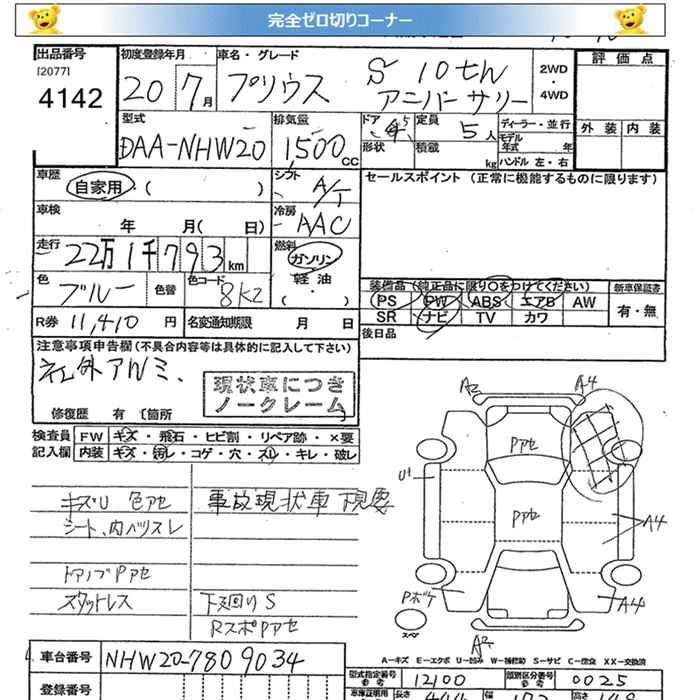 完全ゼロ切りコーナー
出品番号 初度登録年月 車名・グレード 評価点
[2077] 4142 20 7月 プリウス S 10thアニバーサリー 2WD・4WD
型式 排気量 ドア 定員 ディーラー・並行 外装 内装
DAA-NHW20 1500cc 5 5人 モデル年式 年
形状 積載 kg ハンドル 左・右
車歴 シフト セールスポイント (正常に機能するものに限ります)
自家用・( ) A/T
車検 冷房
年 月( 日) AAC
走行 燃料
22万1千793km ガソリン
軽油
( ・ )
色 色替 色コード 装備品(純正品に限り○をつけてください) 新車保証書
ブルー 8K2 PS PW ABS エアB AW 有・無
R券 11,410 円 名変通知期限 月 日 SR ナビ TV カワ
後日品
注意事項申告欄(不具合内容等は具体的に記入して下さい)
社外アルミ、
現状車につき
ノークレーム
修復歴 有 [箇所 ]
検査員 FW キズ・飛石・ヒビ割・リペア跡・×要
記入欄 内装 キズ・汚レ・コゲ・穴・スレ・キレ・破レ
A2 A4
Pアセ
U1
キズU 色アセ 事故現状車 下見要
シート、内ハリスレ
Pアセ
A4
ドアノブPアセ
スタットレス 下廻りS
RスポPアセ
Pボケ A4
スペア
A2
A－キズ E－エクボ U－凹み W－補修跡 S－サビ C－腐食 XX－交換済
車台番号 NHW20-7809034
型式指定番号 参考 12100 類別区分番号 参考 0025
登録番号
車庫証明用 参考 長さ 幅 高さ